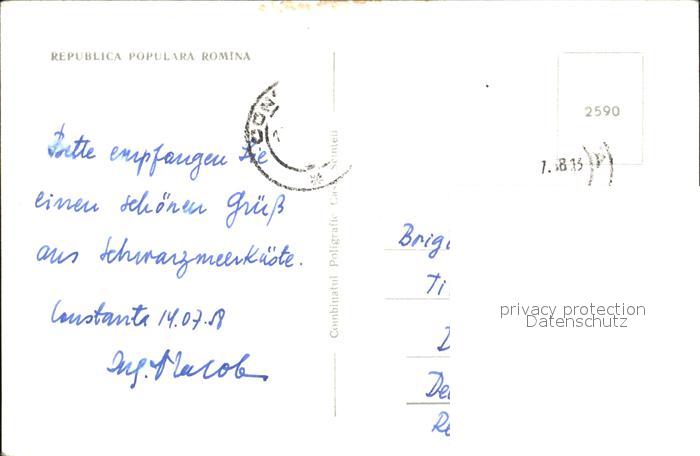 REPUBLICA POPULARA ROMINA
Bitte empfangen Sie
einen schönen Grüß
aus Schwarzmeerküste.
Constanta 14.07.58
Ing.
Combinatul Poligrafic
CON
2590
Brig
Ti
De
Re
privacy protection
Datenschutz